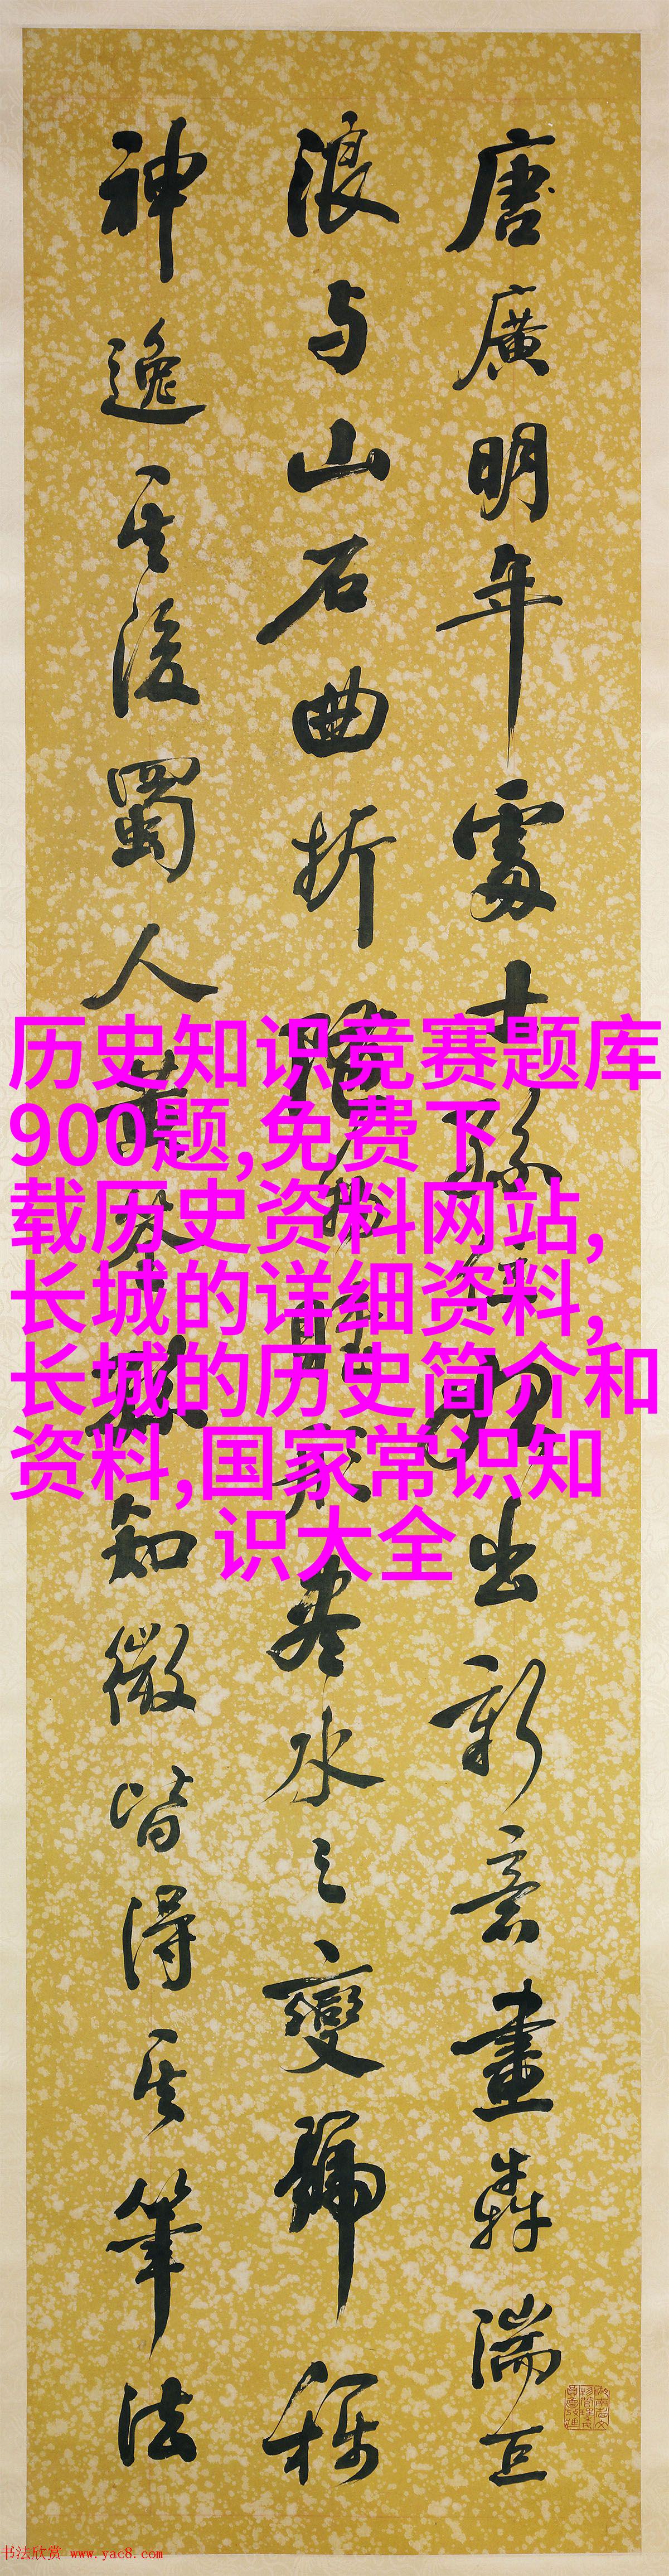 唐廣明年處士孫位始出新意畫犇湍巨
浪与山石曲折隨物賦形盡水之變號稱
神逸其後蜀人黄筌孫知微皆得其筆法
历史知识竞赛题库
900题,免费下
载历史资料网站,
长城的详细资料,
长城的历史简介和
资料,国家常识知
识大全
书法欣赏 www.yac8.com